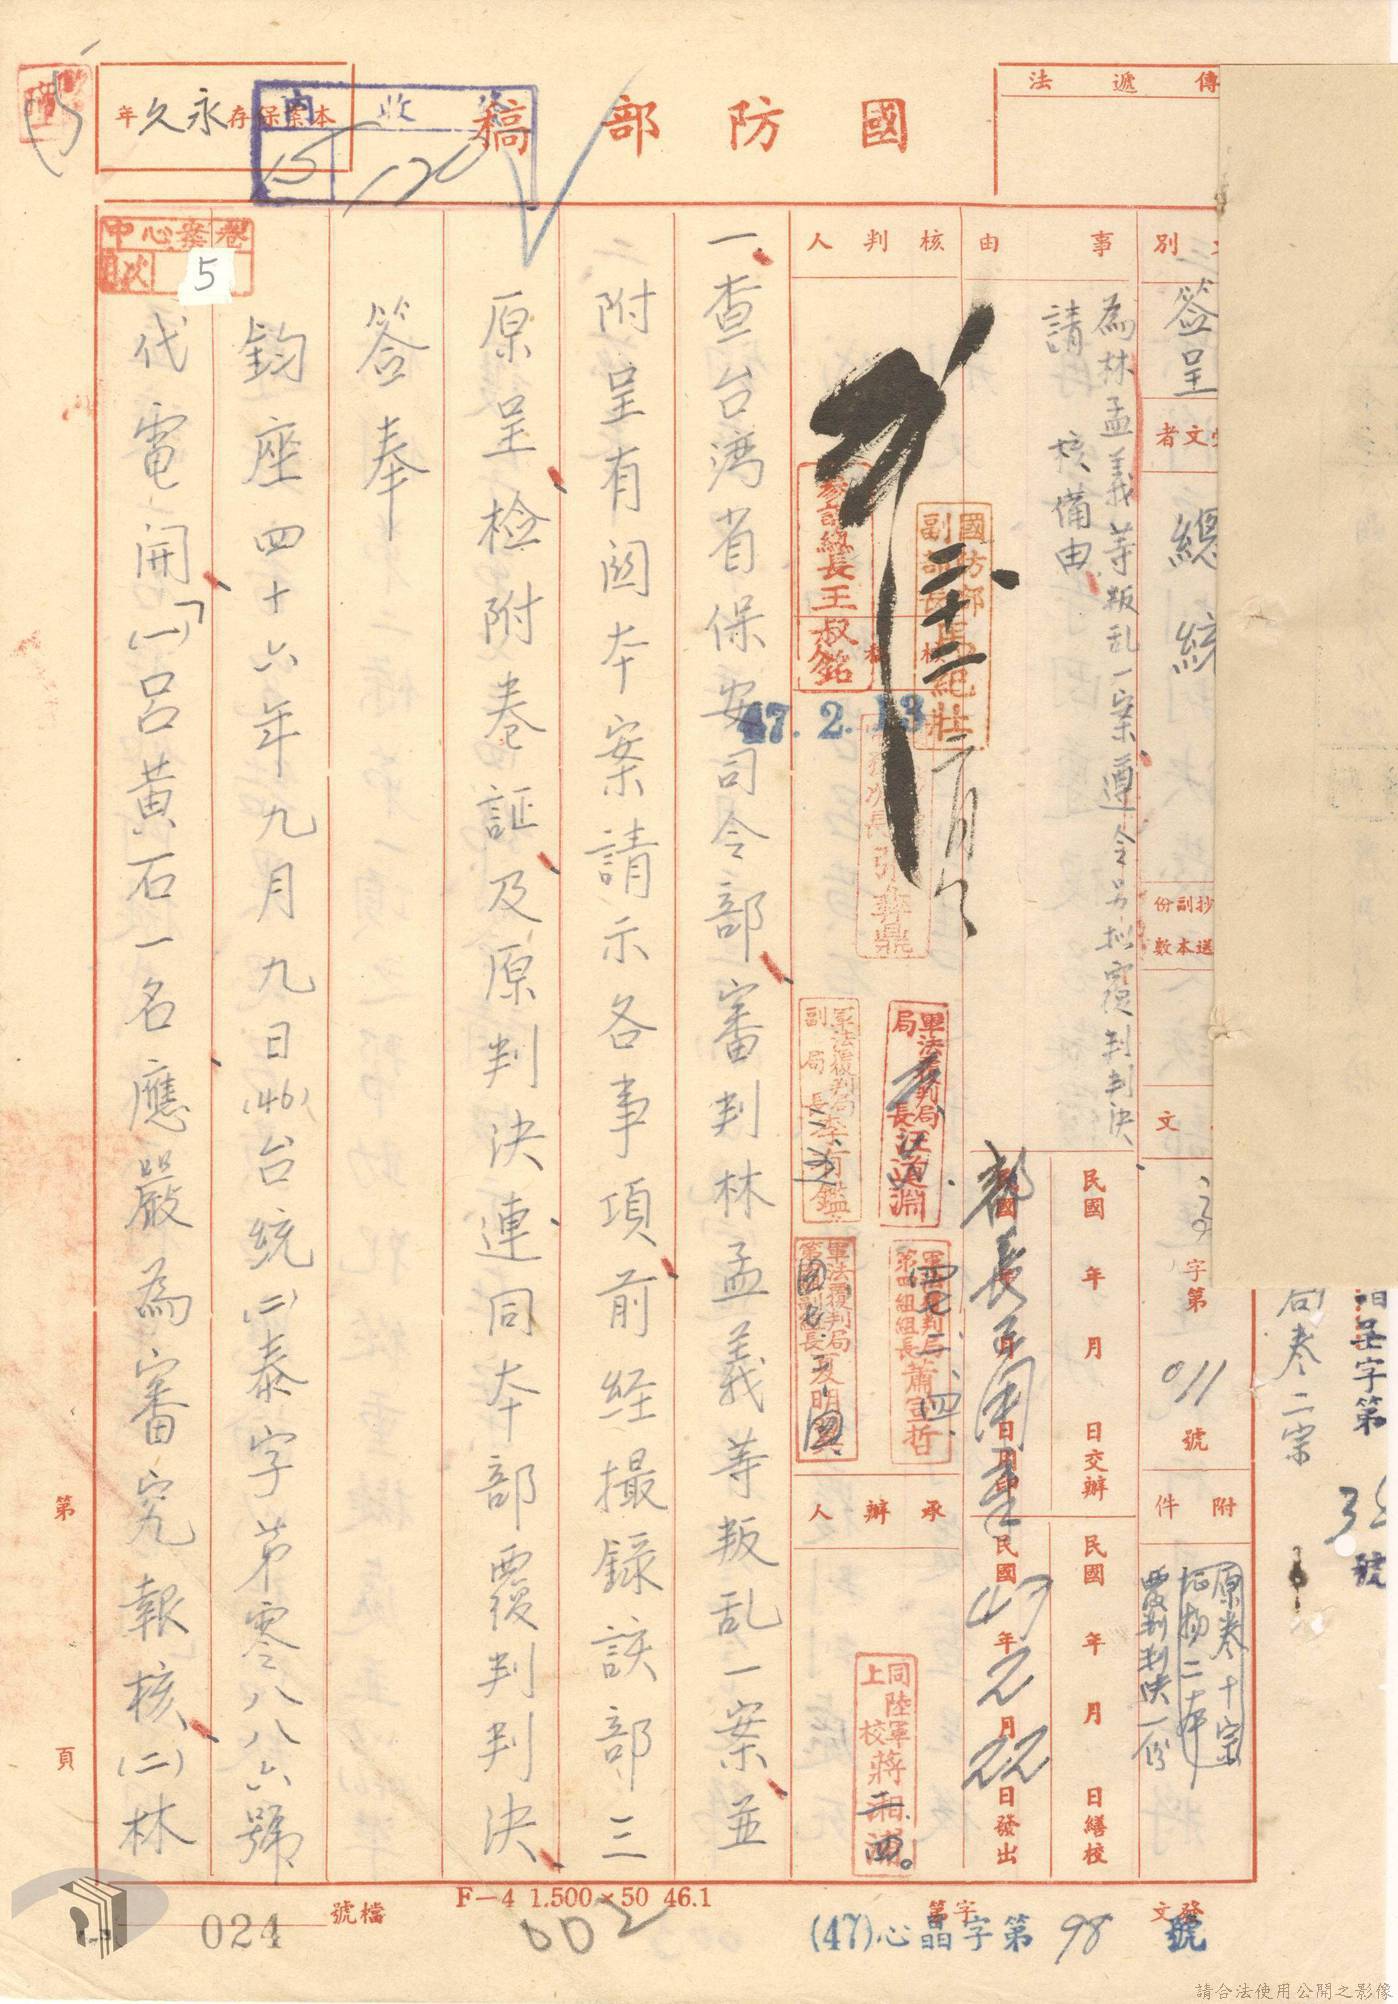 國防部稿
傳遞法
本案保存永久年
收
15
120
中心案卷
目次
5
別
簽呈
受文者
總統
抄送副本份數
文
字第
011
號
附件
原卷十宗
証物二本
覆判判決一份
事由
為林孟義等叛乱一案遵令另擬覆判判決
請 核備由
民國 年 月 日交辦
民國 年 月 日繕校
民國 年 月 日用印
民國47年2月22日發出
核判人
參謀總長王叔銘
國防部副部長馬紀壯
47.2.13
軍法覆判局局長汪道淵
軍法覆判局副局長李有鑑
軍法覆判局第四組組長蕭宣哲
承辦人
同上校陸軍蔣湘浦
一、查台湾省保安司令部審判林孟義等叛乱一案並
附呈有関本案請示各事項前経撮錄該部三
原呈檢附卷証及原判決連同本部覆判判決
簽奉
鈞座四十六年九月九日(46)台統(二)泰字第零八八六號
代電開「(一)呂黃石一名應嚴為審究報核(二)林
第 頁
檔號
024
F-4 1.500×50 46.1
002
發文字第
(47)心晶字第98號
卷二宗
字第
號
請合法使用公開之影像